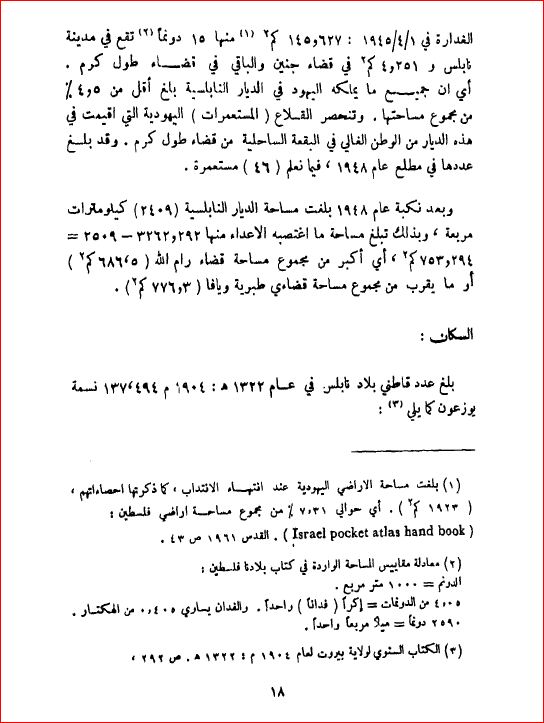 الغدارة في ١٩٤٥/٤/١ : ١٤٥,٦٢٧ كم٢ (١) منها ١٥ دونماً (٢) تقع في مدينة
نابلس و ٤,٢٥١ كم٢ في قضاء جنين والباقي في قضاء طول كرم .
أي ان جميع ما يملكه اليهود في الديار النابلسية بلغ أقل من ٤,٥ ٪
من مجموع مساحتها . وتنحصر القلاع ( المستعمرات ) اليهودية التي اقيمت في
هذه الديار من الوطن الغالي في البقعة الساحلية من قضاء طول كرم . وقد بلغ
عددها في مطلع عام ١٩٤٨ ، فيما نعلم ( ٤٦ ) مستعمرة .
وبعد نكبة عام ١٩٤٨ بلغت مساحة الديار النابلسية (٢٤٠٩) كيلومترات
مربعة ، وبذلك تبلغ مساحة ما اغتصبه الاعداء منها ٣٢٦٢,٢٩٢ – ٢٥٠٩ =
٧٥٣,٢٩٤ كم٢ ، أي أكبر من مجموع مساحة قضاء رام الله ( ٦٨٦,٥ كم٢ )
أو ما يقرب من مجموع مساحة قضاءي طبرية ويافا ( ٧٧٦,٣ كم٢ ) .
السكان :
بلغ عدد قاطني بلاد نابلس في عام ١٣٢٢ ه : ١٩٠٤ م ١٣٧,٤٩٤ نسمة
يوزعون كما يلي (٣) :
(١) بلغت مساحة الاراضي اليهودية عند انتهاء الانتداب ، كما ذكرتها احصاءاتهم ،
( ١٩٢٣ كم٢ ) . أي حوالي ٧,٣١ ٪ من مجموع مساحة اراضي فلسطين :
( Israel pocket atlas hand book ) . القدس ١٩٦١ ص ٤٣ .
(٢) معادلة مقاييس المساحة الواردة في كتاب بلادنا فلسطين :
الدونم = ١٠٠٠ متر مربع .
٤,٠٥ من الدونمات = إكراً ( فداناً ) واحداً . والفدان يساري ٠,٤٠٥ من الهكتار .
٢٥٩٠ دونماً = ميلاً مربعاً واحداً .
(٣) الكتاب السنوي لولاية بيروت لعام ١٩٠٤ م : ١٣٢٢ ه . ص ٢٩٢ ،
١٨